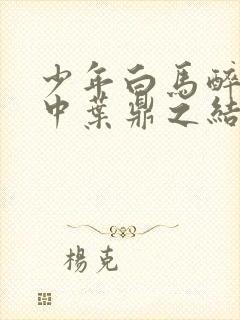 少年白馬醉
中葉鼎之結
楊克